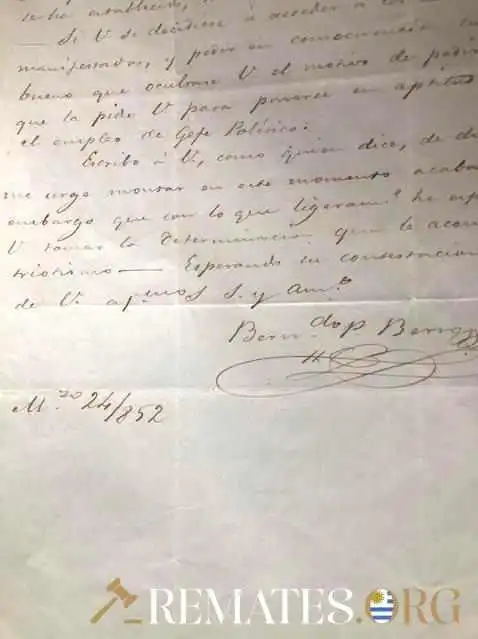 se ha establecido,
— Si V se decidiese á acceder á los
manifestados, y pedir en consecuencia su
bueno que ocultase V el motivo de pedir
que la pide V para ponerse en aptitud
el empleo de Gefe Político.
Escribo á V, como quien dice, de
me urge montar en este momento
embargo que con lo que ligeram.e he
V tomar la determinacion que le
triotismo — Esperando su contestacion
de V. S. y Am.o
Bern.do P. Berro
M.zo 24/852
REMATES.ORG